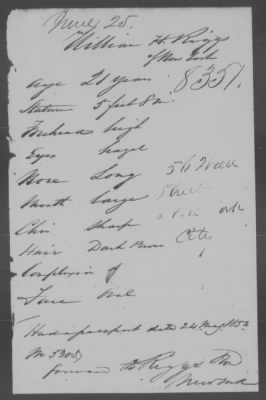 June 25.
William H. Riggs
of New York
8351.
Age 21 years
Stature 5 feet 8 in
Forehead high
Eyes hazel
Nose Long
Mouth Large
Chin Sharp
Hair Dark Brn
Complexion
Face Oval
56 Wall
Street
New York
City
Had a passport dated 24 May
No 5305
Forward Riggs